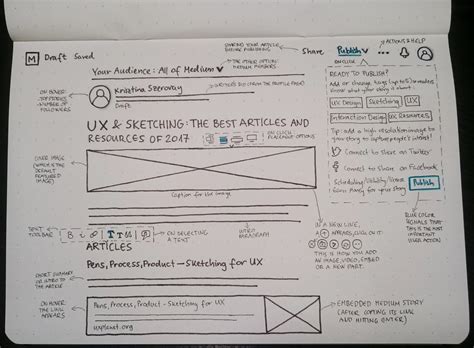 ACTIONS & HELP
SHARING YOUR ARTICLE
BEFORE PUBLISHING
M Draft Saved
Share Publish ...
Your Audience: All of Medium
THE OTHER OPTION:
MEDIUM MEMBERS
ON CLICK
READY TO PUBLISH?
Add or change tags (up to 5) so readers
know what your story is about
UX Design Sketching UX
Interaction Design UX Resources
Tip: add a high resolution image to
your story to capture people's interest!
Connect to share on Twitter
Connect to share on Facebook
Publish
ON HOVER:
NUMBER OF
FOLLOWERS
Krisztina Szerovay
Draft
UX & SKETCHING: THE BEST ARTICLES AND
RESOURCES OF 2017
ON CLICK
PLACEMENT OPTIONS
COVER IMAGE
(WHICH IS THE
DEFAULT
FEATURED IMAGE)
Caption for the image
BLUE COLOR
SIGNALS THAT
THIS IS THE MOST
IMPORTANT
USER ACTION
TEXT
TOOLBAR
B i T T
ON SELECTING
A TEXT
INTRO
PARAGRAPH
IN A NEW LINE,
A + APPEARS, CLICK ON IT
THIS IS HOW YOU ADD
AN IMAGE, VIDEO, EMBED
OR A NEW PART.
ARTICLES
Pens, Process, Product → Sketching for UX
SHORT SUMMARY
OR INTRO TO
THE ARTICLE
ON HOVER
THE LINK
APPEARS
Pens, Process, Product - Sketching for UX
uxplanet.org
EMBEDDED MEDIUM STORY
(AFTER COPYING ITS LINK
AND HITTING ENTER)